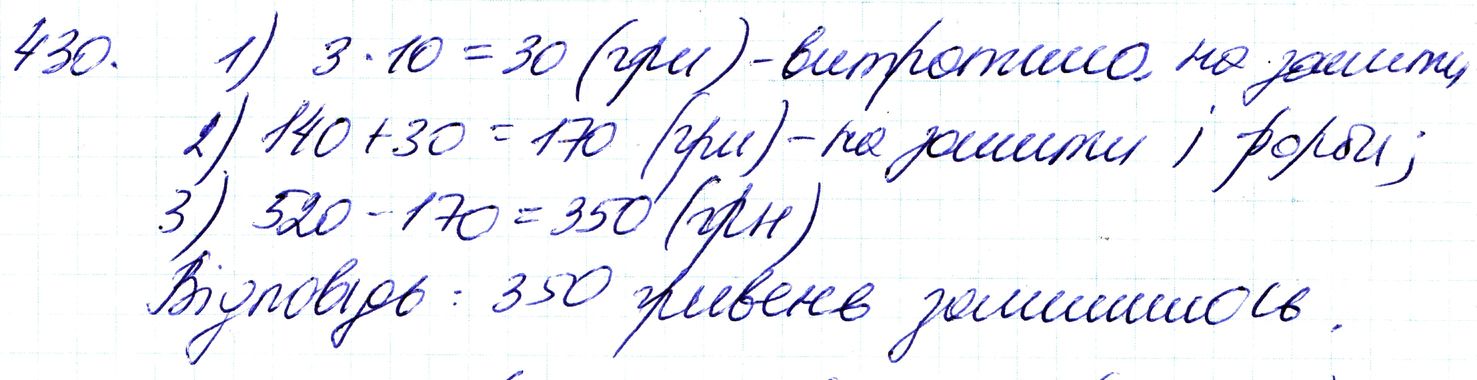 430. 1) 3 · 10 = 30 (грн) - витратила на зошити
2) 140 + 30 = 170 (грн) - на зошити і фарби;
3) 520 - 170 = 350 (грн)
Відповідь: 350 гривень залишилось.